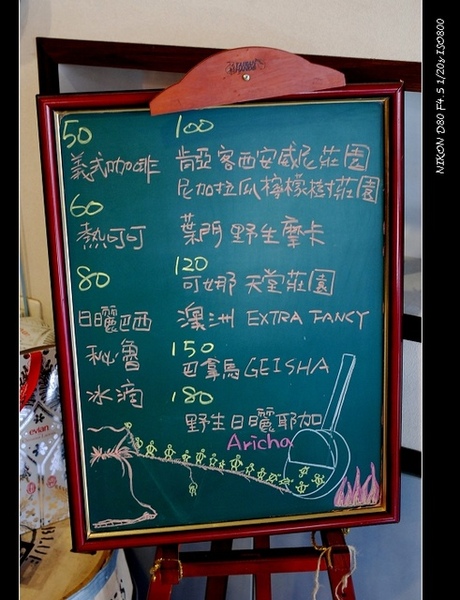 50
義式咖啡
60
熱可可
80
日曬巴西
秘魯
冰滴
100
肯亞客西安威尼莊園
尼加拉瓜檸檬樹莊園
葉門野生摩卡
120
可娜天堂莊園
澳洲 EXTRA FANCY
150
巴拿馬GEISHA
180
野生日曬耶加
Aricha
evian
NIKON D80 F4.5 1/20s ISO800